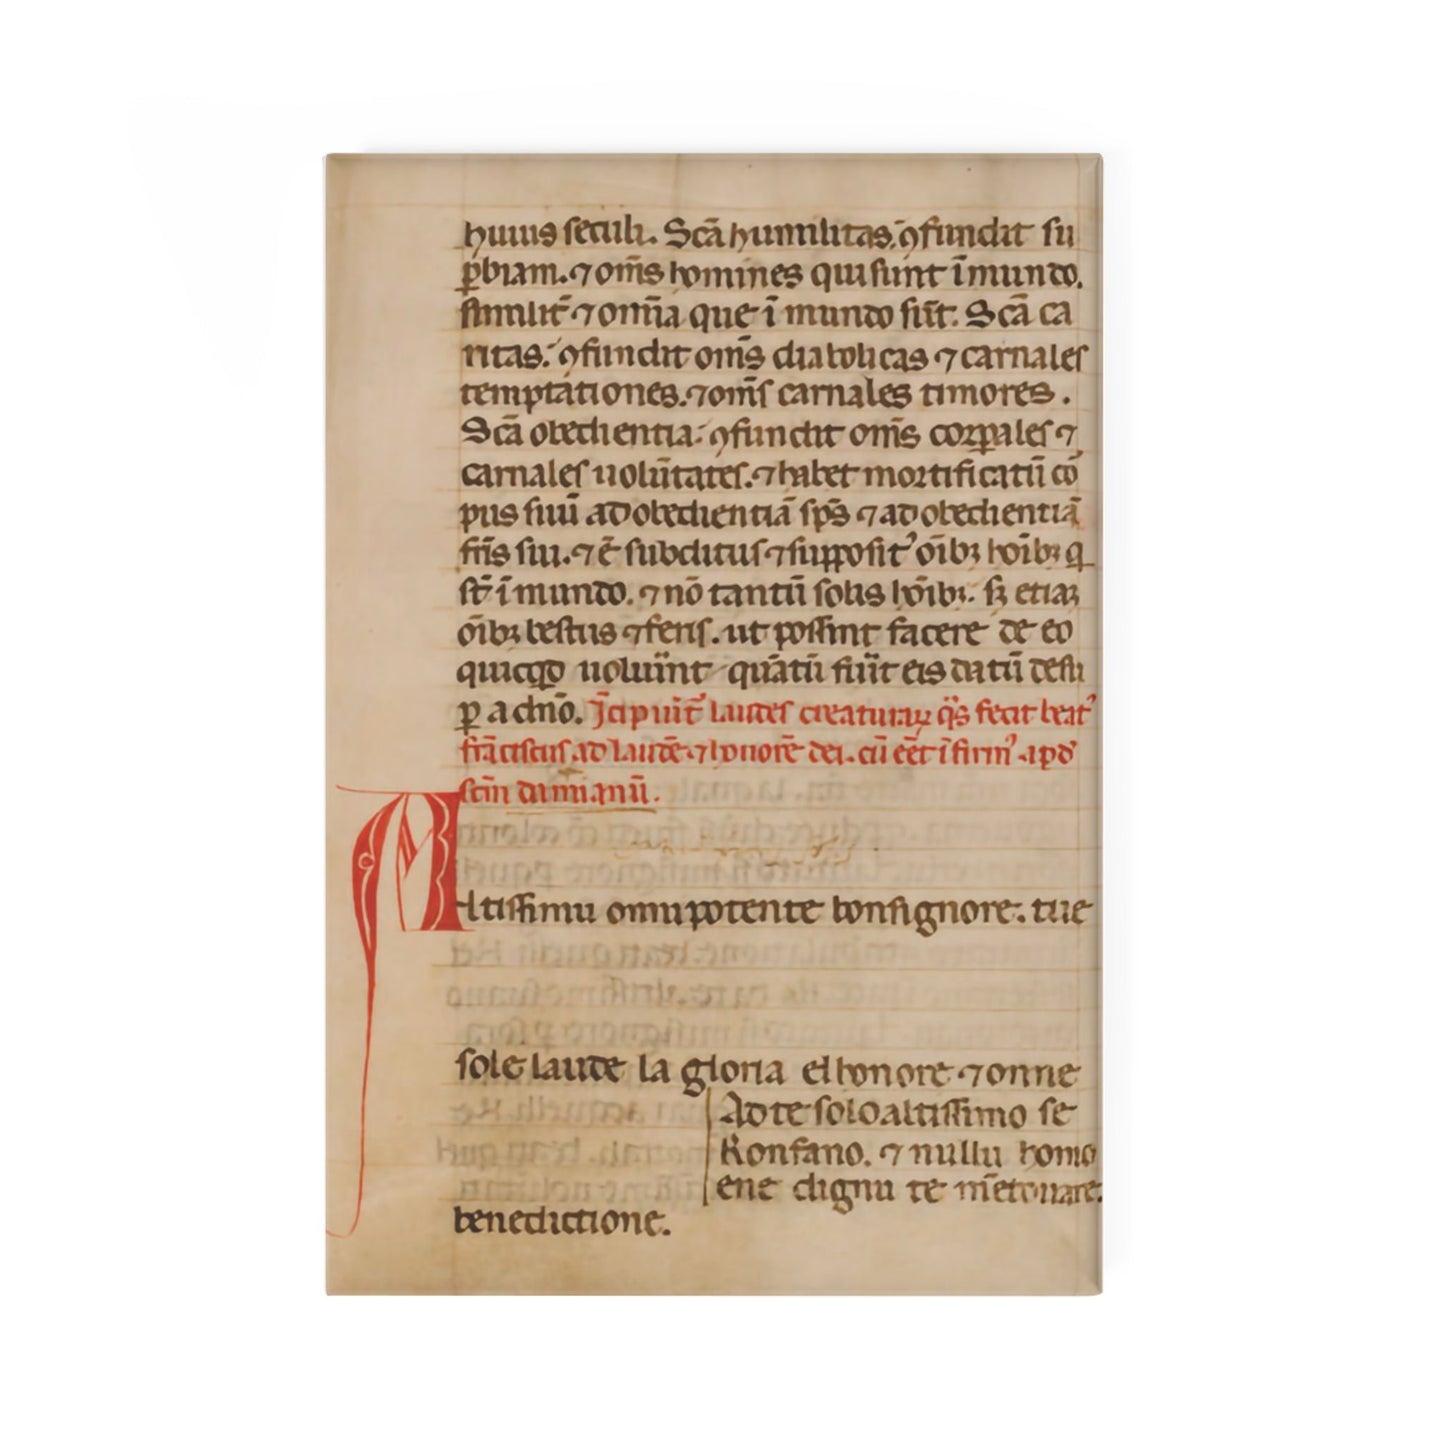 huius seculi. Scā humilitas. ꝯfundit su
ꝑbiam. ⁊ om̄s homines qui sunt ī mundo.
similit̄ ⁊ om̄ia que ī mundo sūt. Scā ca
ritas. ꝯfundit om̄s diabolicas ⁊ carnales
temptationes. ⁊ om̄s carnales timores.
Scā obedientia. ꝯfundit om̄s corꝑales ⁊
carnales uolūtates. ⁊ habet mortificatū cō
pus suū ad obedientiā sp̄s ⁊ ad obedientiā
fr̄is sui. ⁊ ē subditus ⁊ supposit' oīb; hoīb; q
st̄ ī mundo. ⁊ nō tantū solis hoīb; s; etiaꝫ
oīb; bestiis ⁊ feris. ut possint facere de eo
quicqd uoluīnt quātū fūit eis datū desu
ꝑ a dn̄o. Īcipiūt laudes creaturaꝝ q̄s fecit beat'
frāciscus ad laudē ⁊ honorē dei. cū eēt īfirm' apd
scm̄ damianū.
Altissimu omnipotente bonsignore. tue
sole laude la gloria elhonore ⁊ onne
Ad te solo altissimo se
Konfano. ⁊ nullu homo
ene dignu te m̄touare.
benedictione.